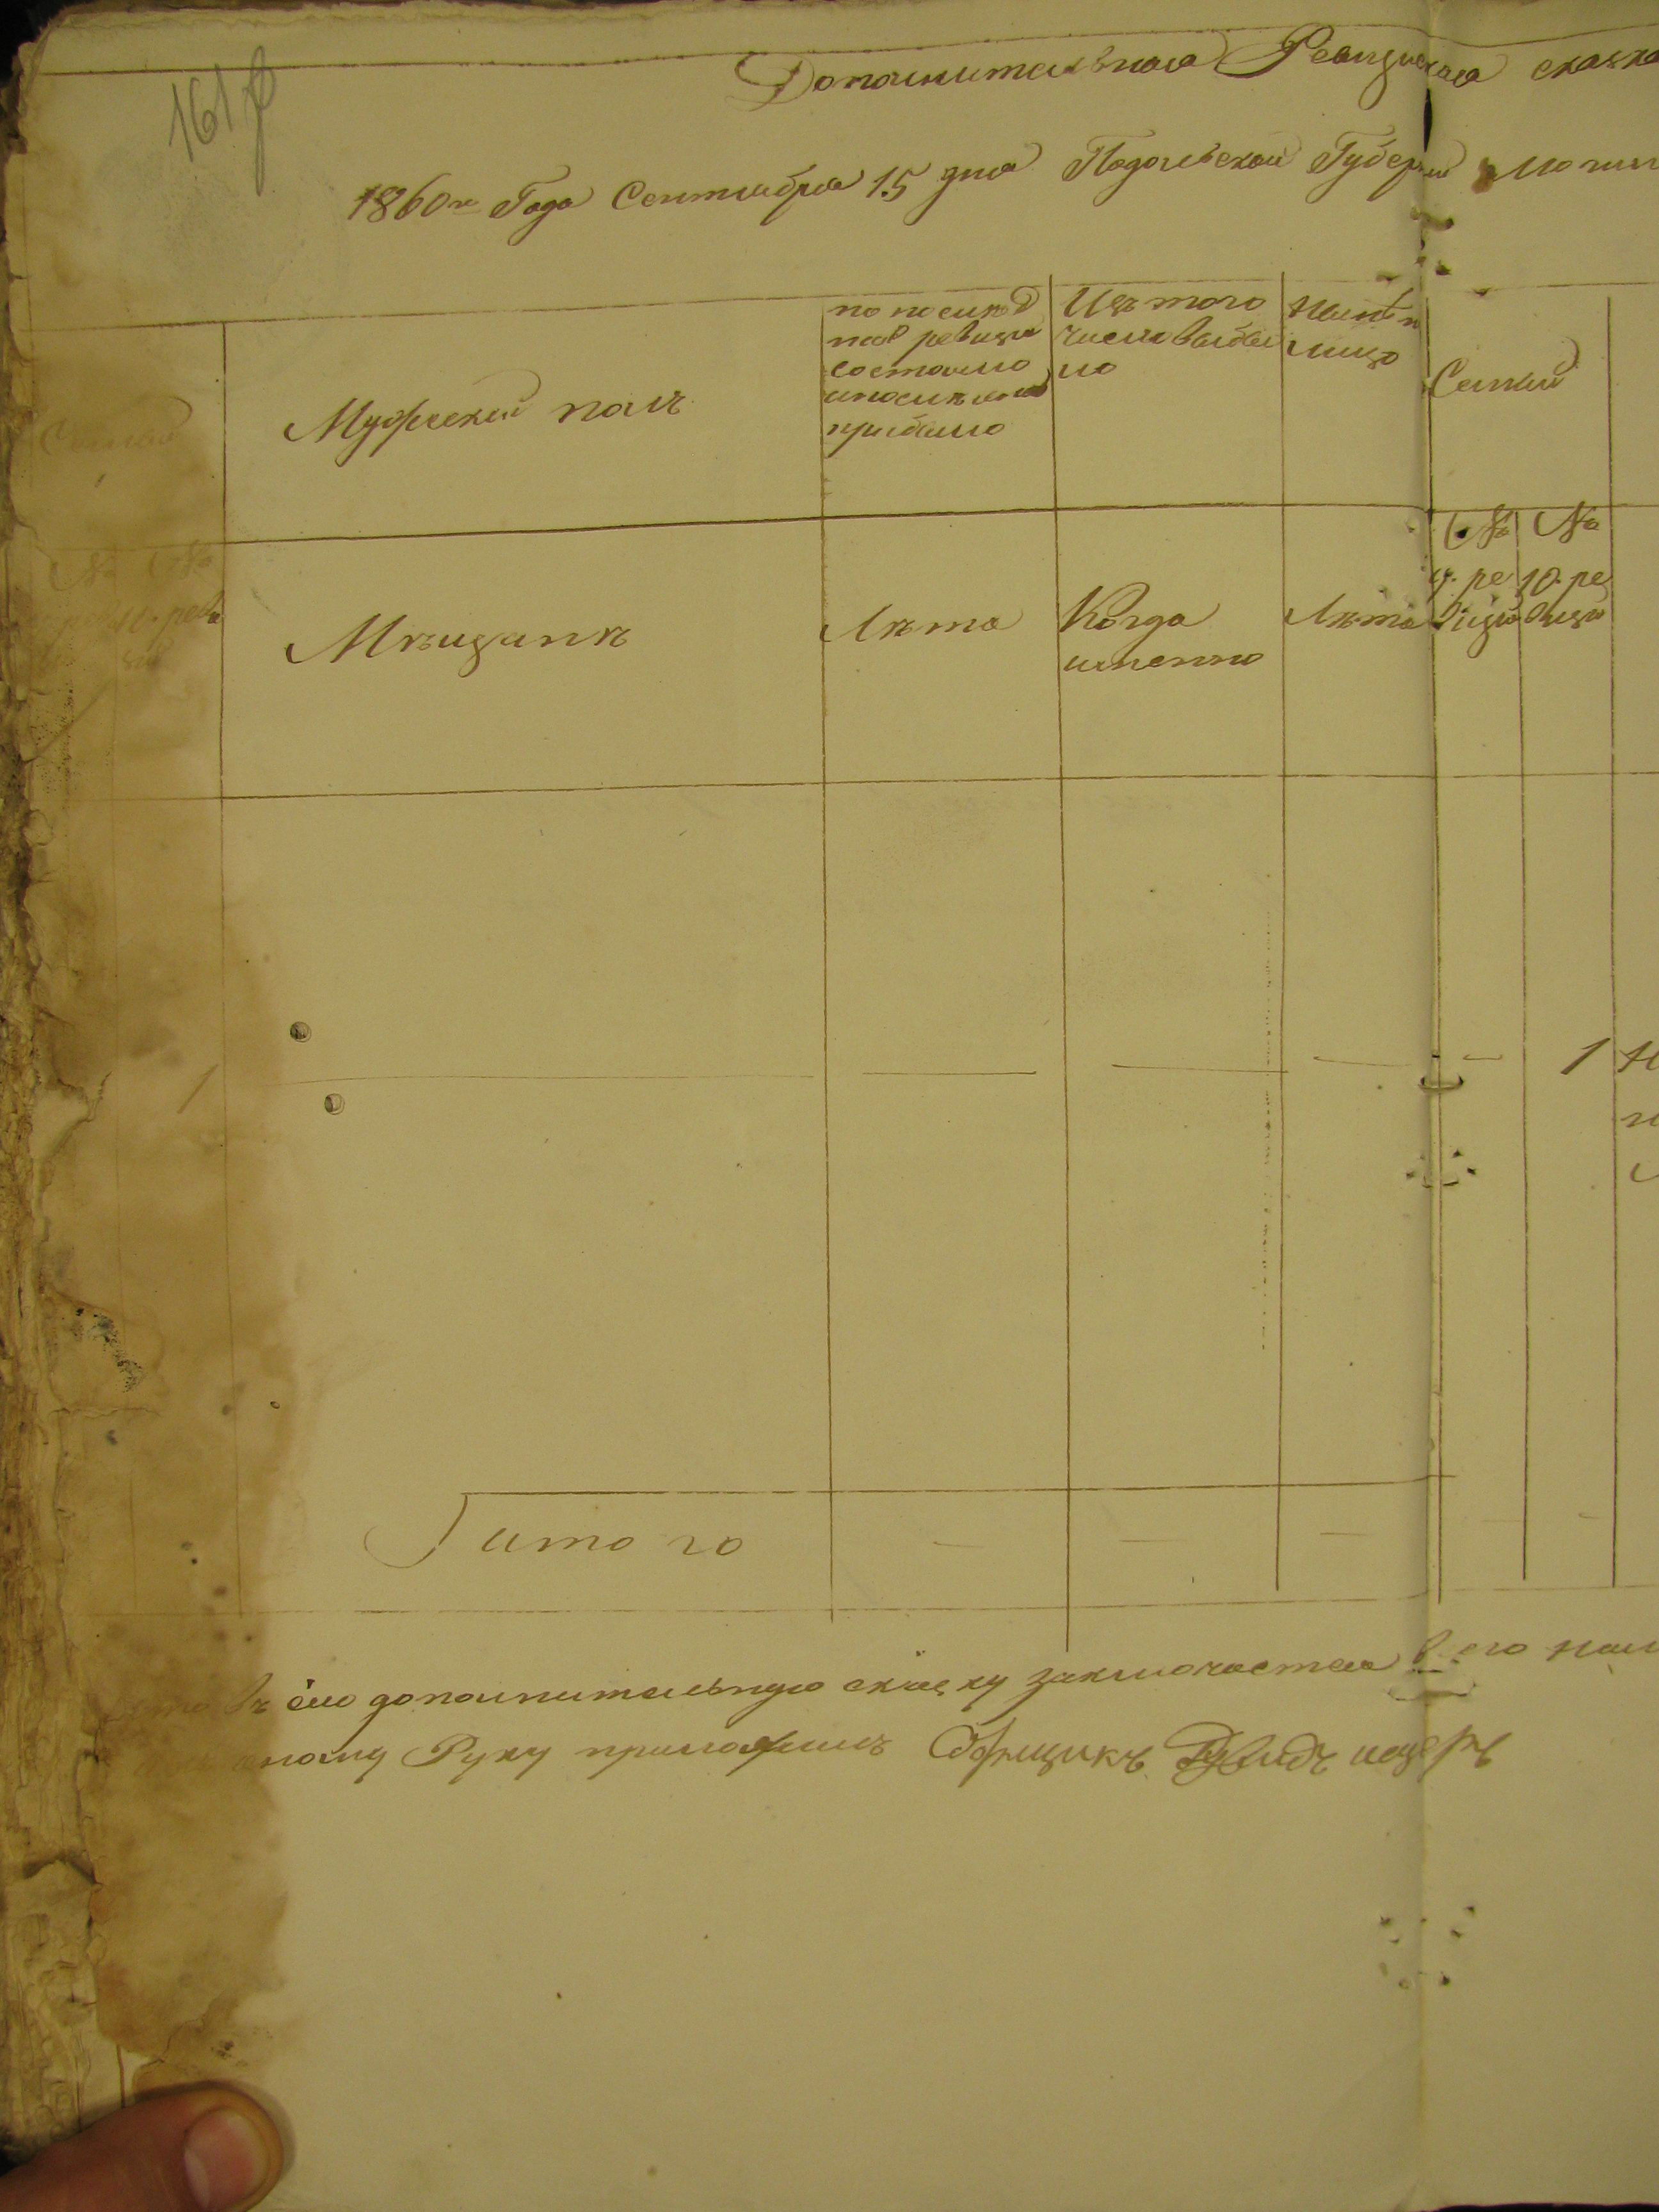 161
Дополнительная Ревизская сказка
1860го Года Сентября 15 дня Подольской Губерніи Могил
Семьи
Мужескій полъ
по послѣд
ней ревизіи
состояло
и послѣ оной
прибыло
Изъ того
числа выбы
ло
Нынѣ на
лицо
Семьи
№ №
ревизіи
Мѣщанѣ
Лѣта
Когда
именно
Лѣта
№ №
9. ре 10. ре
визіи визіи
1
1
Итого
въ сію дополнительную скаску заключается всего
Руку приложилъ Сборщикъ